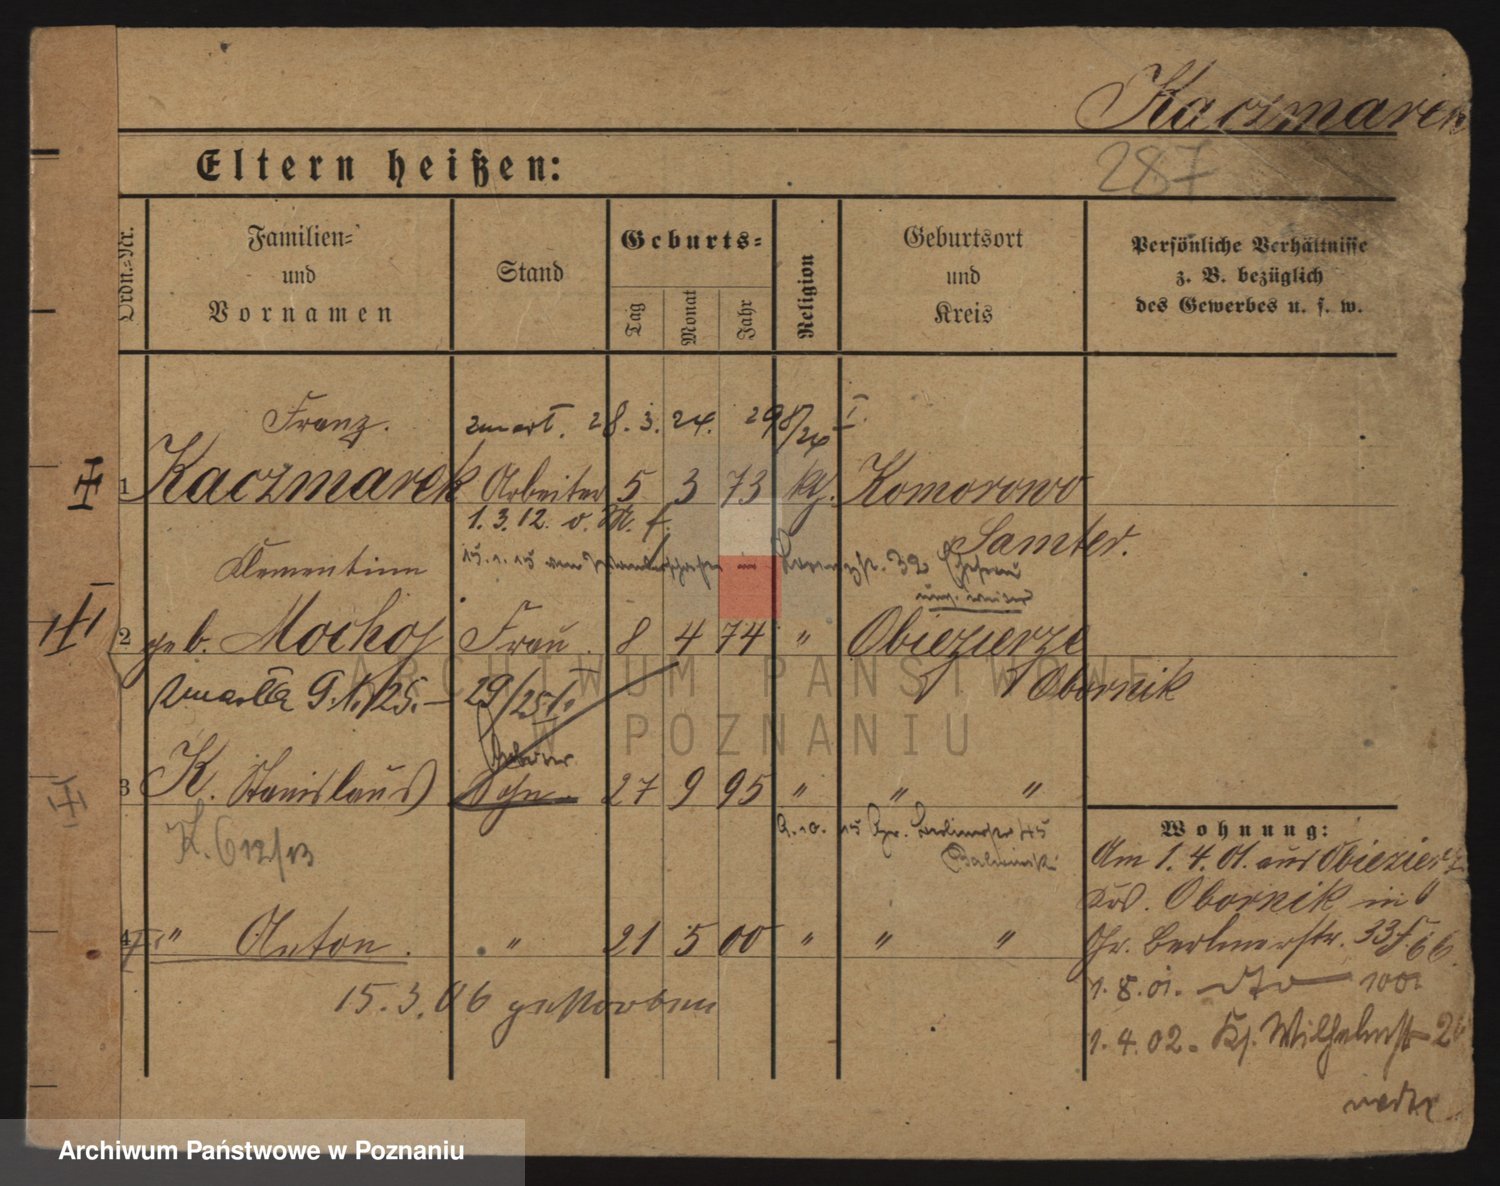 Kaczmarek
287
Eltern heißen:
Ordn.-Nr.
Familien-
und
Vornamen
Stand
Geburts-
Tag
Monat
Jahr
Religion
Geburtsort
und
Kreis
Persönliche Verhältnisse
z. B. bezüglich
des Gewerbes u. s. w.
Franz. zmarł. 28. 3. 24. 298/24 I.
1 Kaczmarek Arbeiter 5 3 73 kth. Komorowo
1. 3. 12. v. M. f. Samter.
Klementine 15. 1. 15 32 Ehefrau
2 geb. Mochoj Frau. 8 4 74 " Obiezierze
Zmarła 9.1.25.- 29/25 I. Obornik
3 K. Stanislaus Sohn. 27 9 95 " " "
K. 612/13
Wohnung:
Am 1. 4. 01. aus Obiezierze
Krs. Obornik in
Gr. Berlinerstr. 33
4 " Anton. " 21 5 00 " " "
15. 3. 06 gestorben
1. 8. 01. dto 100.
1. 4. 02. Kg. Wilhelmstr
ARCHIWUM PAŃSTWOWE
W POZNANIU
Archiwum Państwowe w Poznaniu